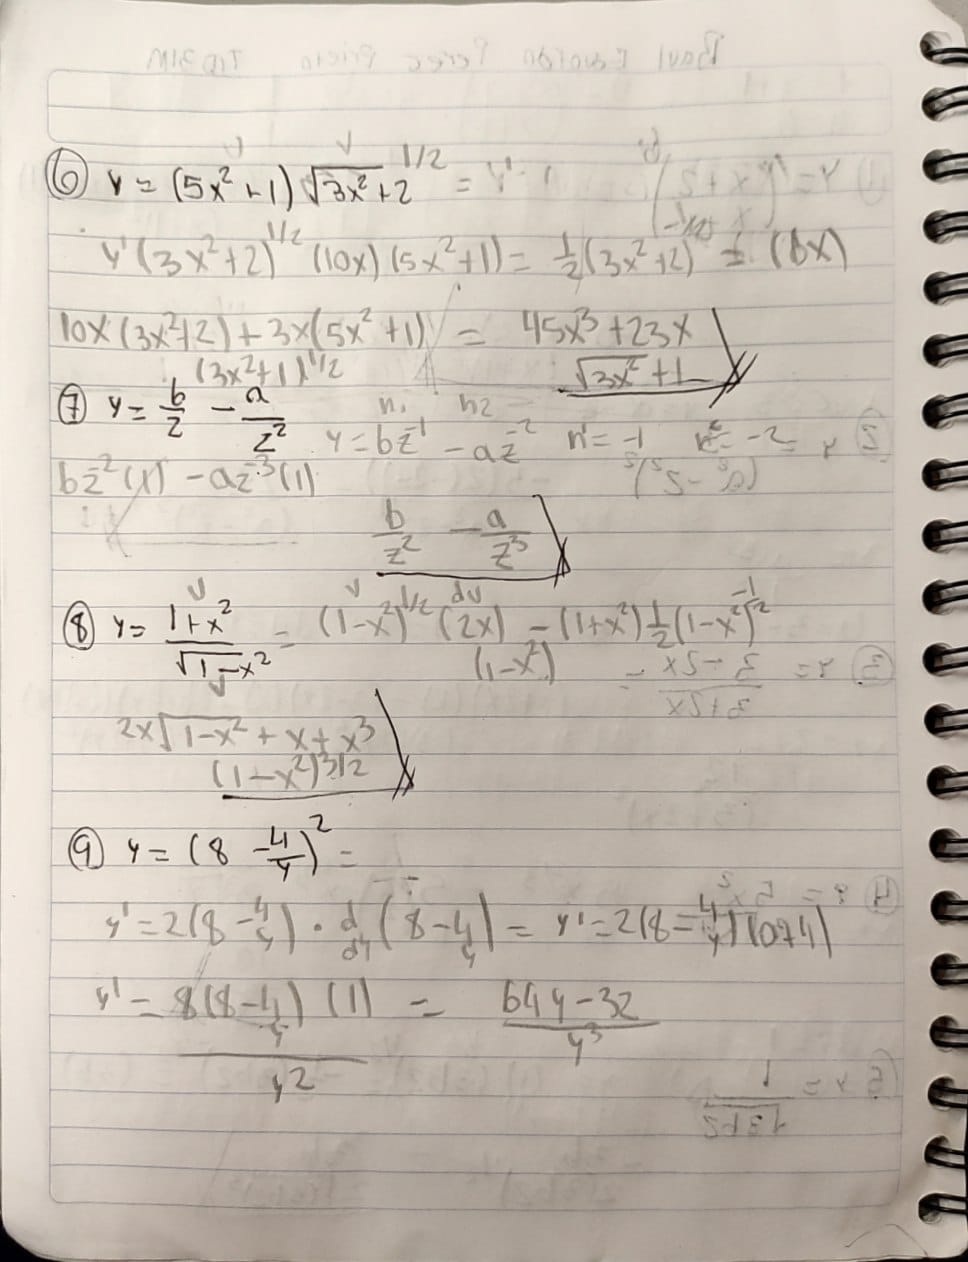 ⑥ y = (5x² + 1) √3x² + 2 ^1/2 =
y' (3x² + 2)^1/2 (10x) (5x² + 1) = 1/2 (3x² + 2) (6x)
10x (3x² + 2) + 3x (5x² + 1) / (3x² + 1)^1/2 = 45x³ + 23x / √3x² + 1
⑦ y = b/z - a/z² y = bz⁻¹ - az⁻² n₁ n₂ n' = -1 n² = -2
bz⁻² (1) - az⁻³ (1)
b/z² - a/z³
⑧ y = 1 + x² / √1 - x² = (1 - x²)^1/2 (2x) - (1 + x²) 1/2 (1 - x²)^-1/2 / (1 - x²)
2x √1 - x² + x + x³ / (1 - x²)^3/2
⑨ y = (8 - 4/y)² =
y' = 2(8 - 4/y) · d/dy (8 - 4/y) = y' = 2(8 - 4/y) (0 + 4)
y' = 8(8 - 4/y) (1) / y² = 64y - 32 / y³